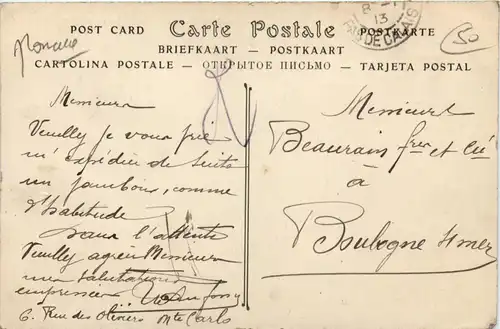 POST CARD Carte Postale POSTKARTE
BRIEFKAART — POSTKAART
CARTOLINA POSTALE — ОТКРЫТОЕ ПИСЬМО — TARJETA POSTAL
8 - 11
13
PAS DE CALAIS
50
Monaco
Messieurs
Veuilly je vous prie
m'expédier de suite
un jambon, comme
d'habitude
dans l'attente
Veuilly agréer Messieurs
mes salutations
empressées
6. Rue des Oliviers Mte Carlo
Messieurs
Beaurain frer et Cie
a
Boulogne s/mer